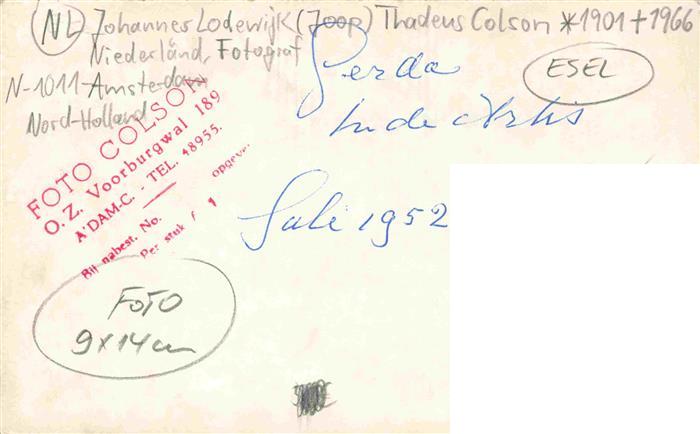 NL Johannes Lodewijk (Joop) Thadeus Colson *1901 +1966
Niederländ. Fotograf
N-1011-Amsterdam
Nord-Holland
ESEL
Gerda
in de Artis
Juli 1952
FOTO COLSON
O.Z. Voorburgwal 189
A'DAM-C. - TEL. 48955.
Bij nabest. No. opgeven
Per stuk f 1
FOTO
9x14cm